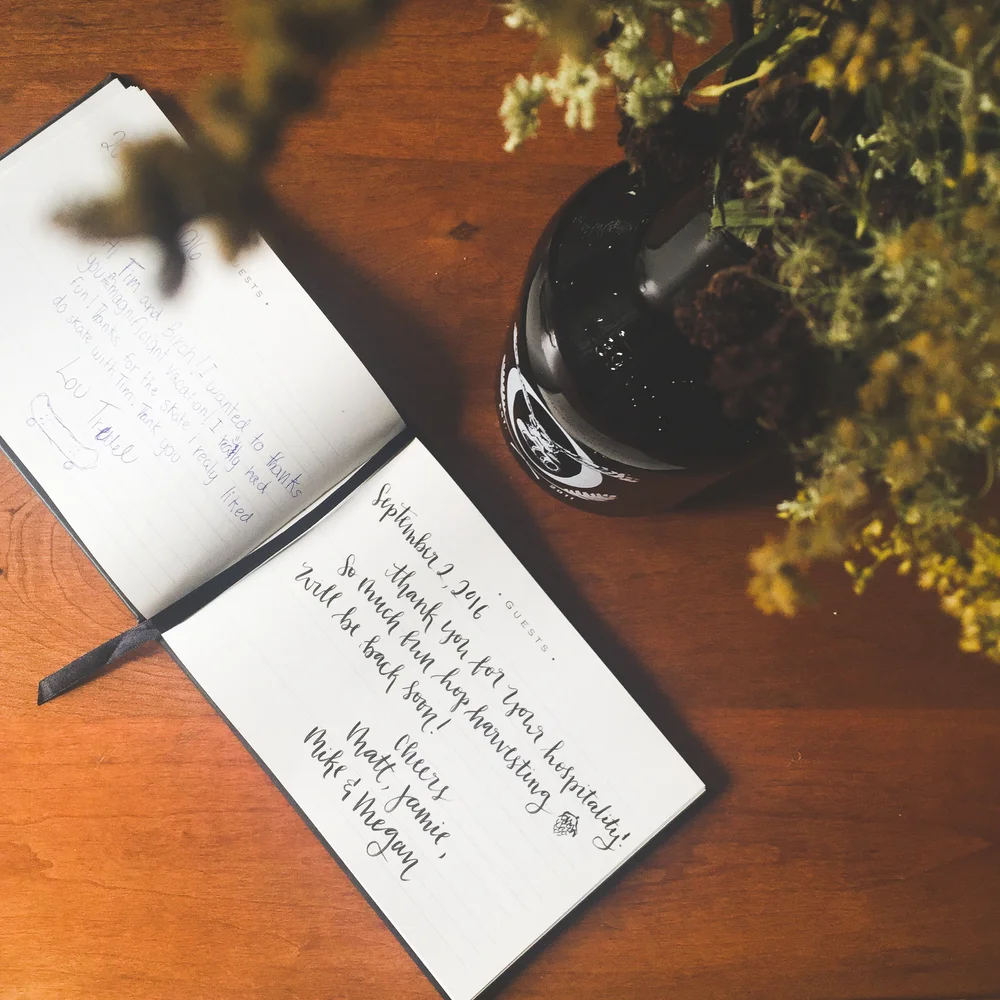 ESTS •
Hi Tim and Birch! I wanted to thanks
you magnificiant vacation! I really had
fun! Thanks for the skate I realy liked
do skate with Tim. Tank you
Lou
• GUESTS •
September 2, 2016
thank you for your hospitality!
So much fun hop harvesting
will be back soon!
Cheers
Matt, Jamie,
Mike & Megan
2011